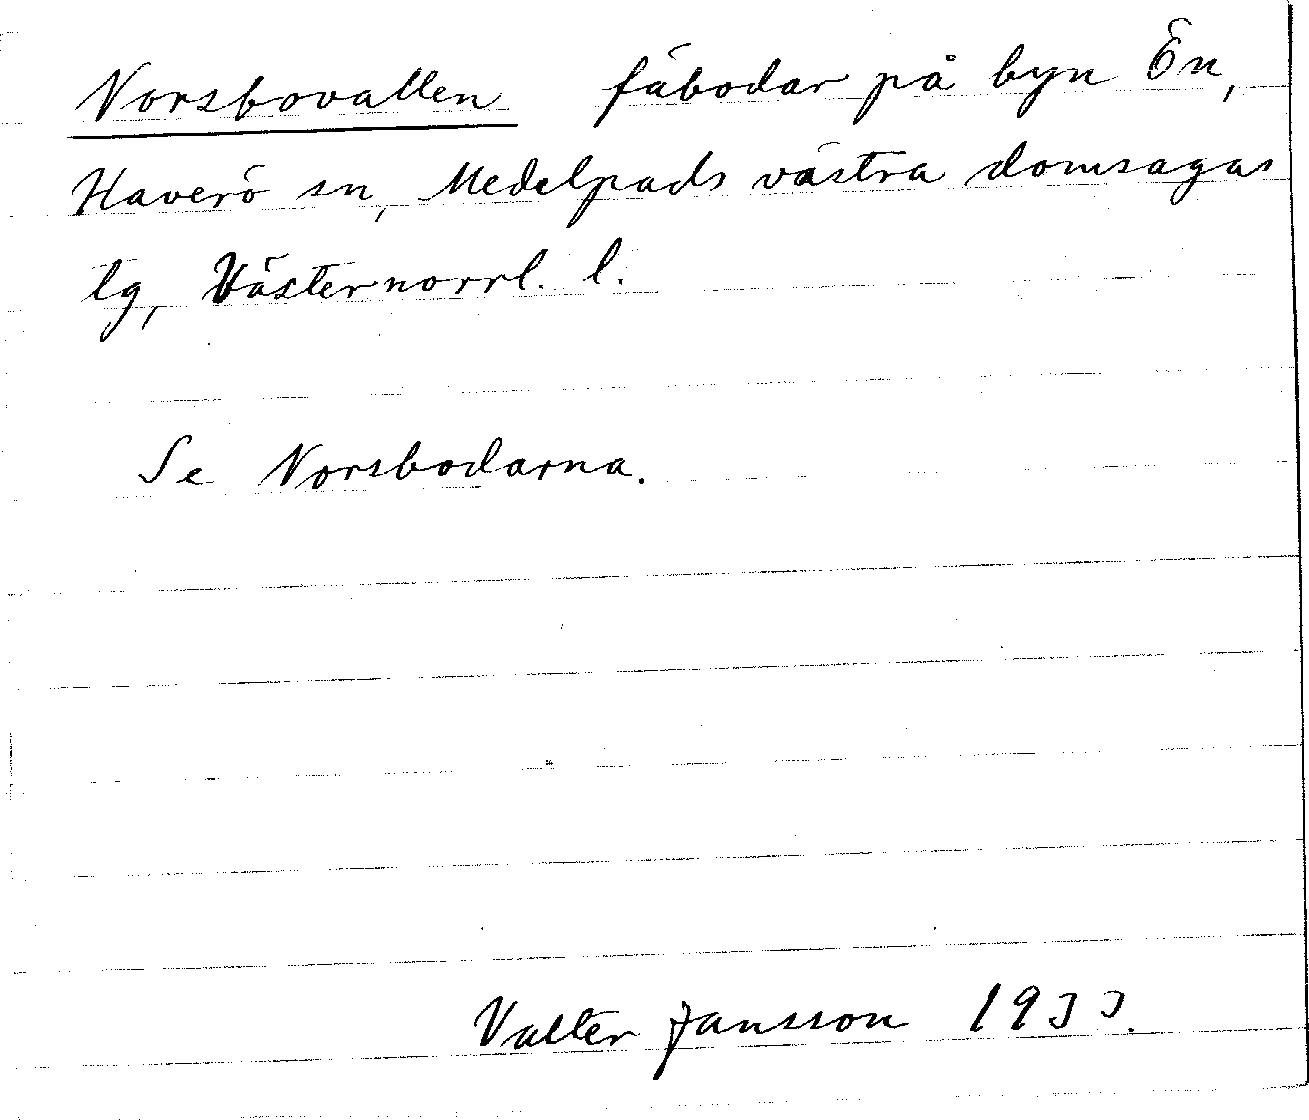 Norsbovallen fäbodar på byn Ön,
Haverö sn, Medelpads västra domsagas
tg, Västernorrl. l.
Se Norsbodarna.
Valter Jansson 1933.